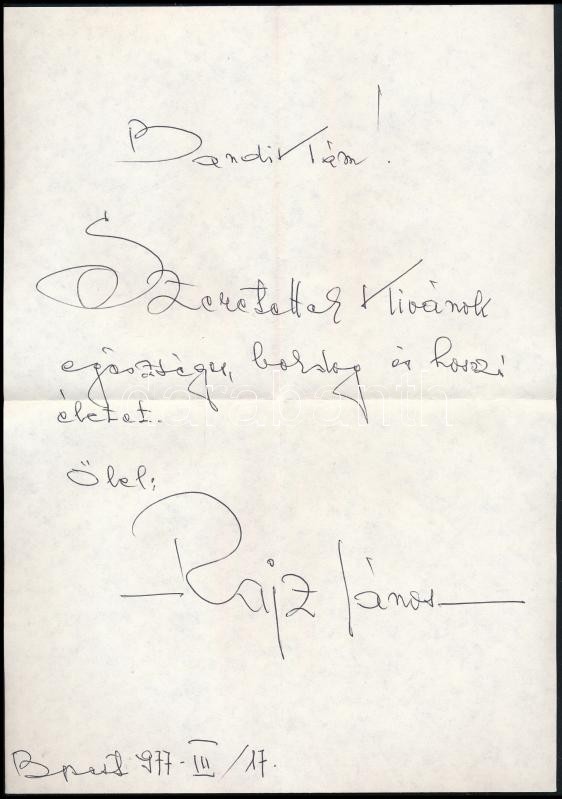 Bandikám!
Szeretettel kivánok
egészséges, boldog és hosszú
életet.
Ölel:
— Rajz János —
Bpest 977. III/17.